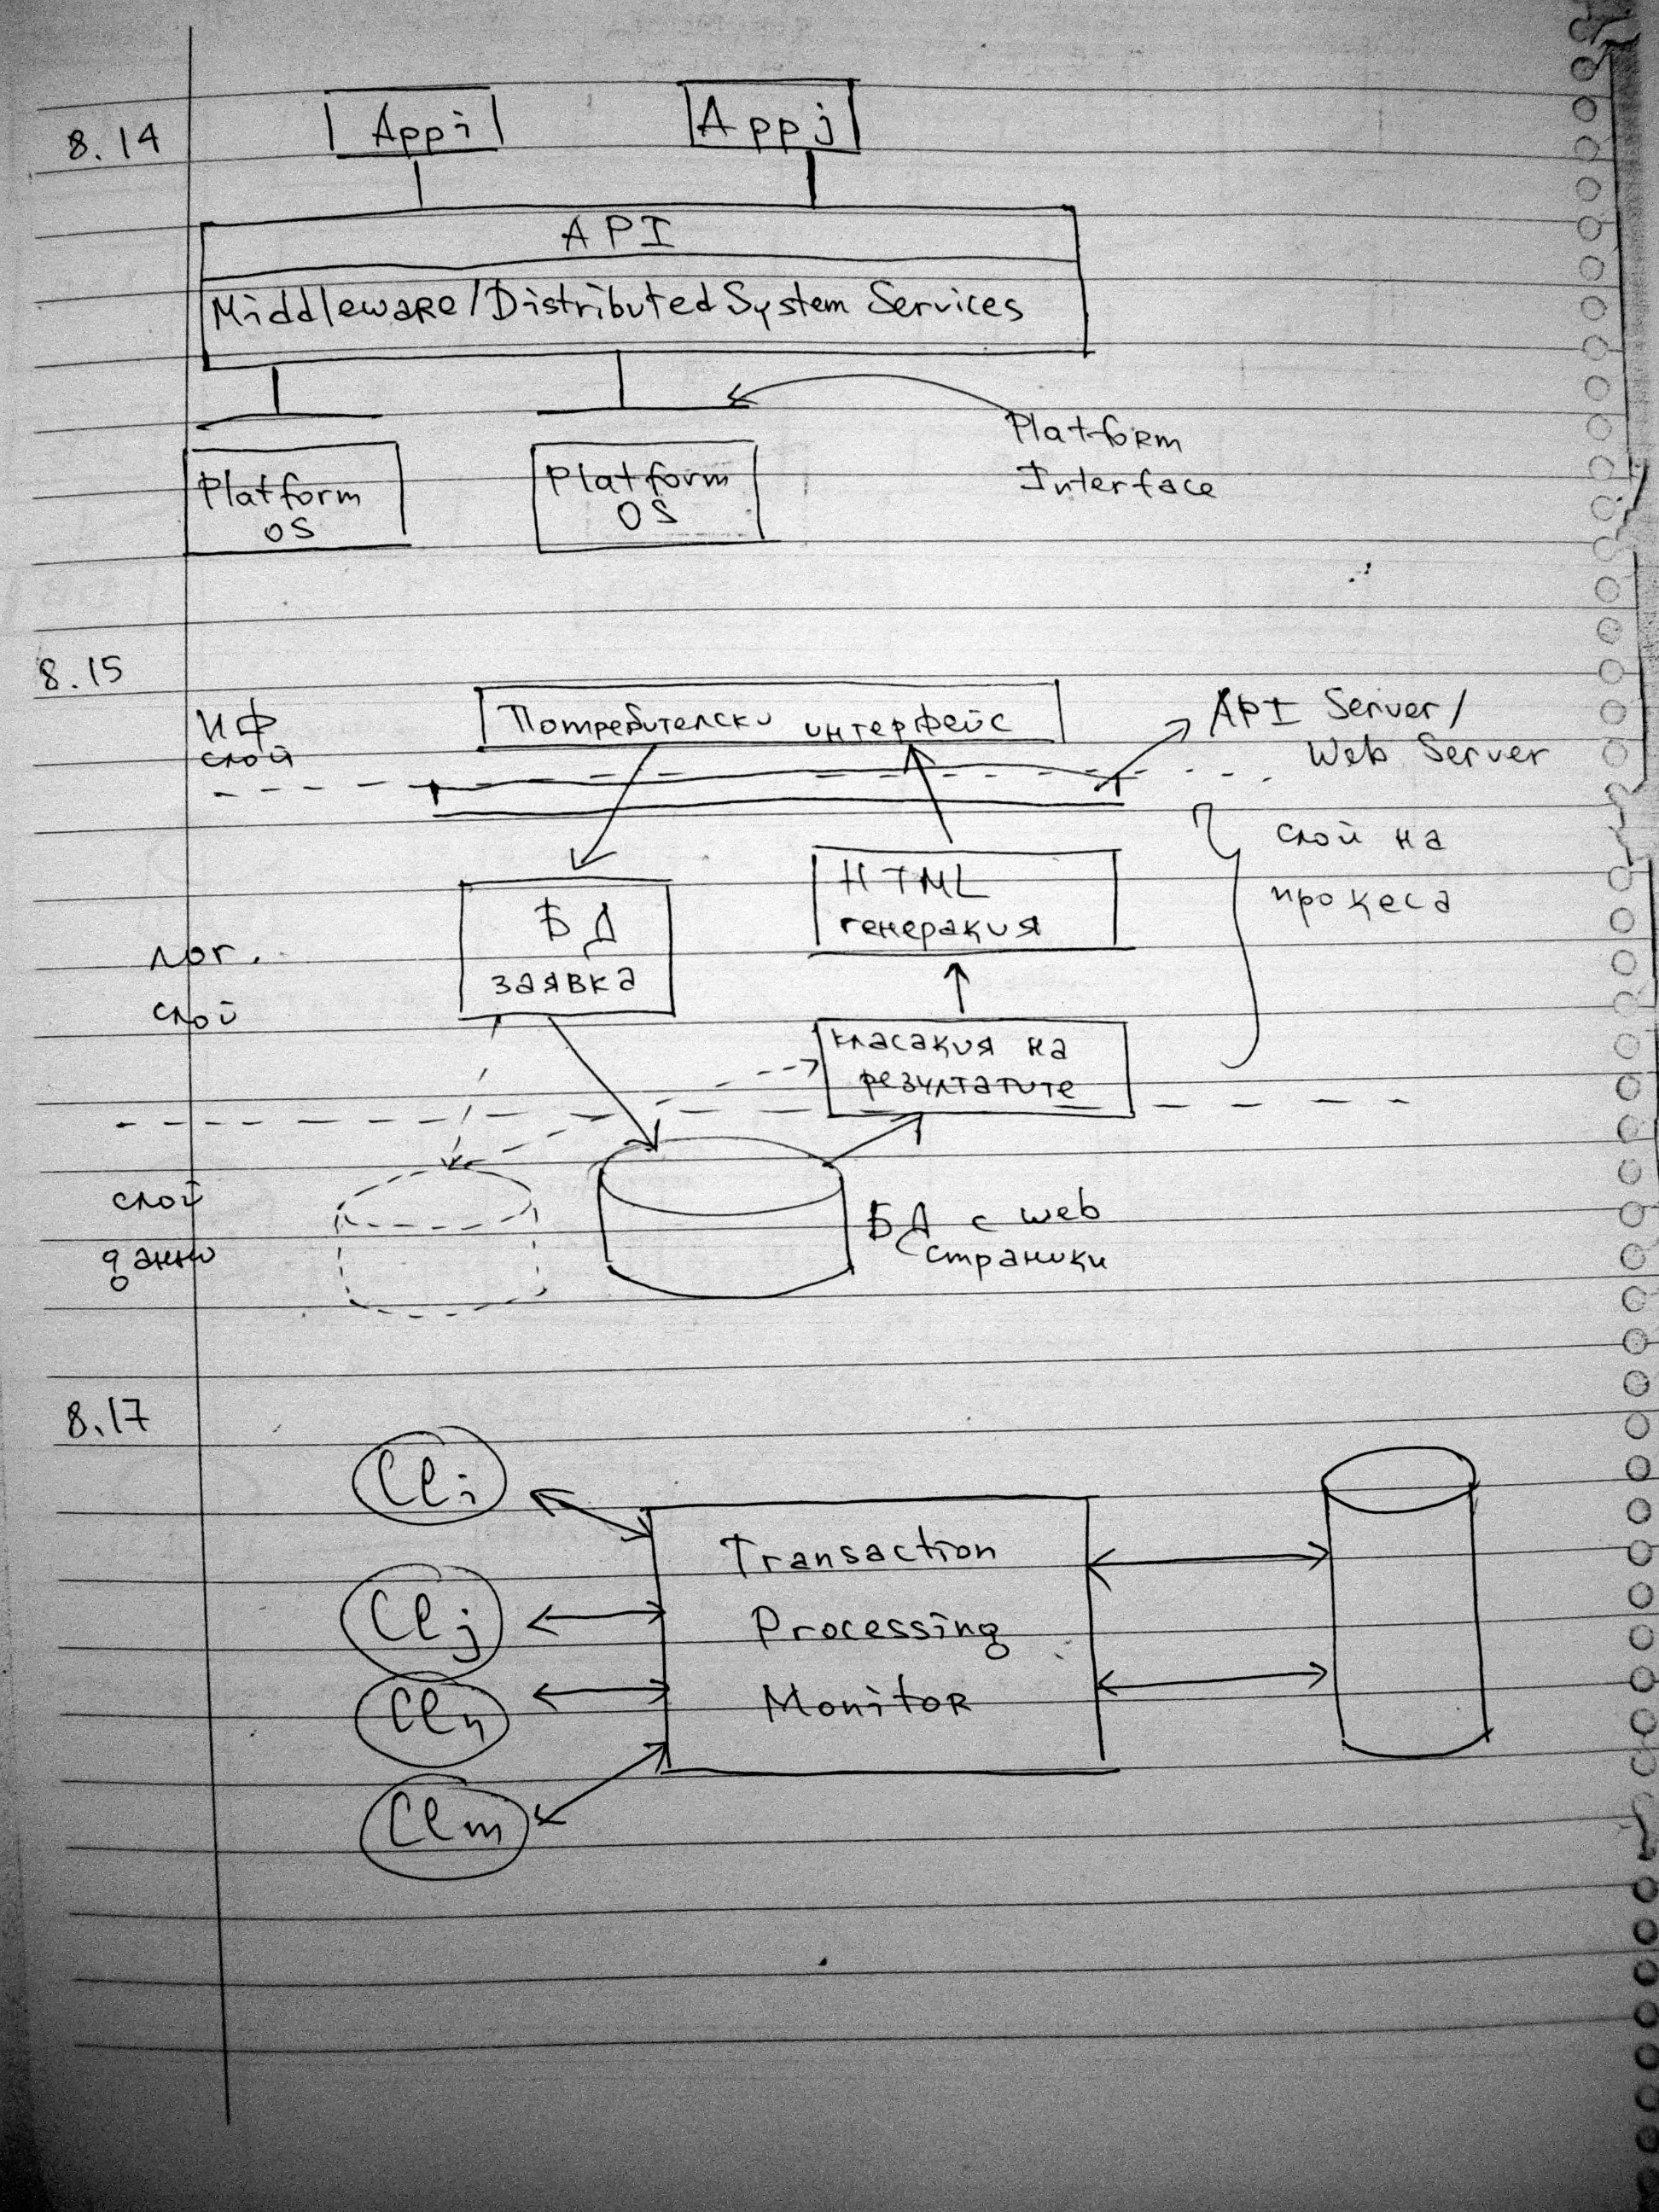 8.14
App i
App j
API
Middleware/Distributed System Services
Platform
Interface
Platform
OS
Platform
OS
8.15
ИФ
слой
Потребителски интерфейс
API Server/
Web Server
слой на
процеса
БД
заявка
HTML
генерация
лог.
слой
класация на
резултатите
слой
данни
БД с web
страници
8.17
Cli
Clj
Cln
Clm
Transaction
Processing
Monitor